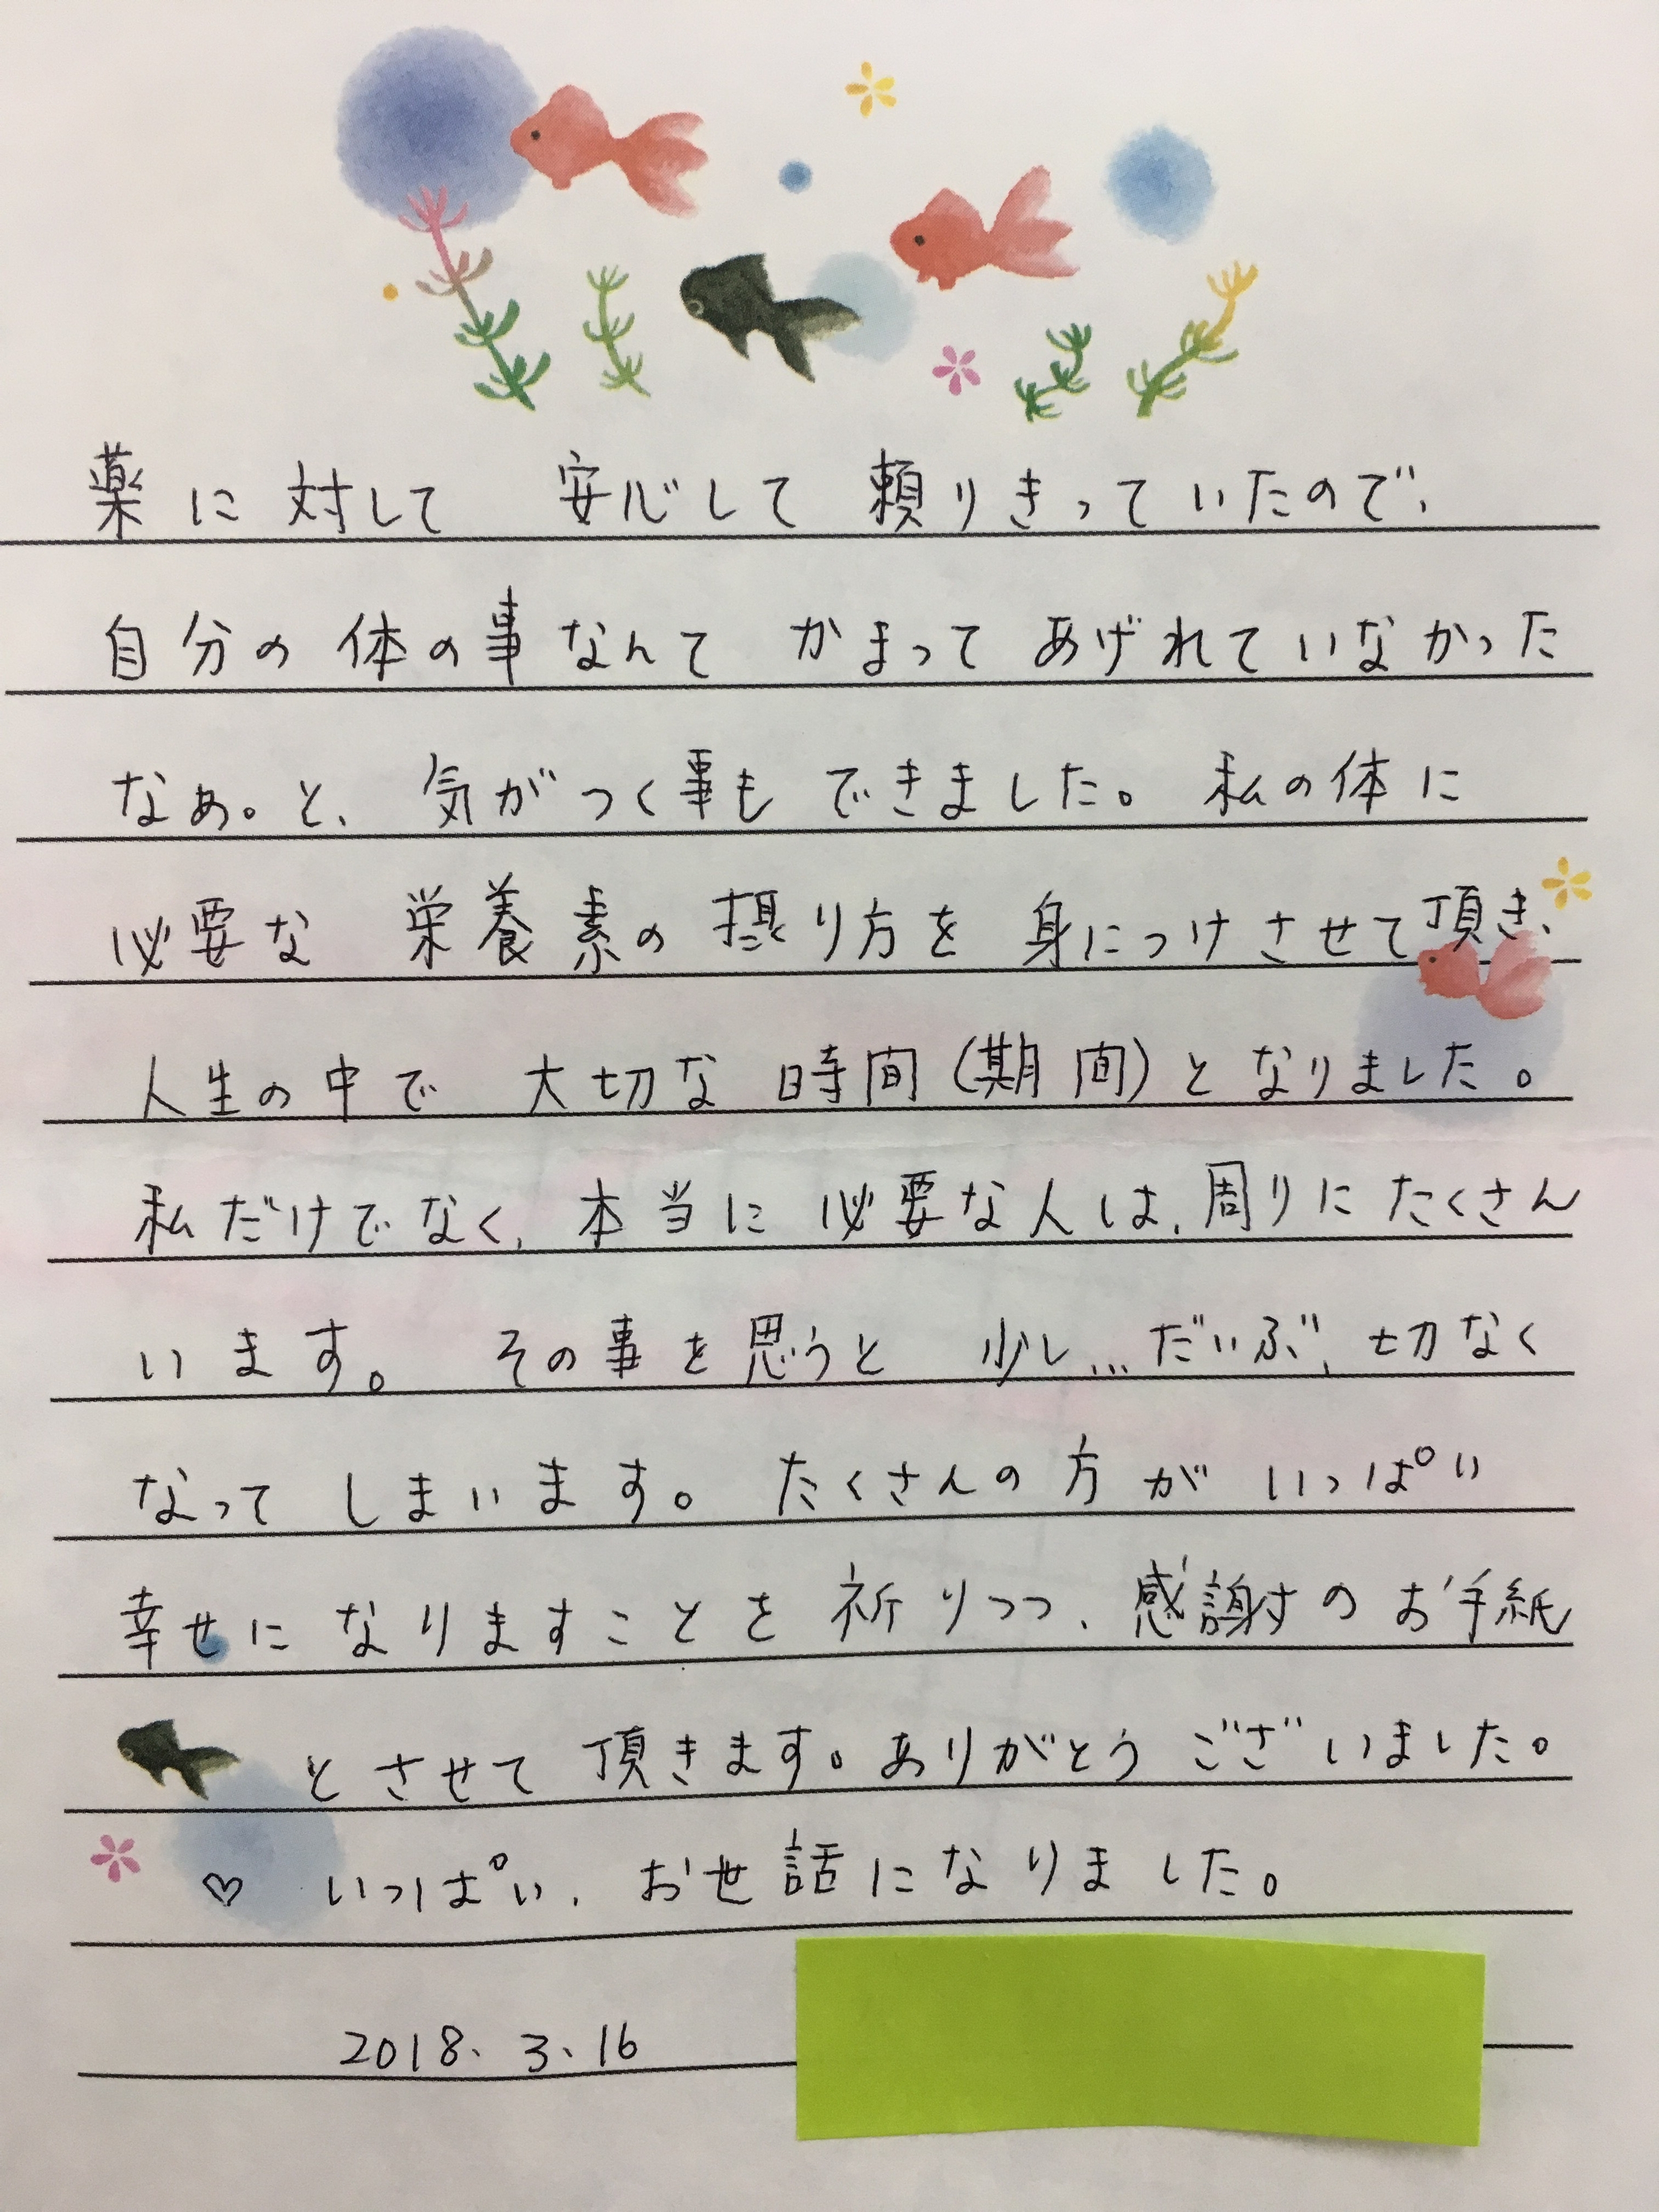 薬に対して 安心して頼りきっていたので、
自分の体の事なんて かまってあげれていなかった
なぁ。と、気がつく事もできました。私の体に
必要な 栄養素の摂り方を 身につけさせて頂き、
人生の中で 大切な時間(期間)となりました。
私だけでなく、本当に必要な人は、周りにたくさん
います。 その事を思うと 少し…だいぶ、切なく
なってしまいます。たくさんの方がいっぱい
幸せになりますことを祈りつつ、感謝すのお手紙
とさせて頂きます。ありがとうございました。
♡ いっぱい、お世話になりました。
2018、3、16